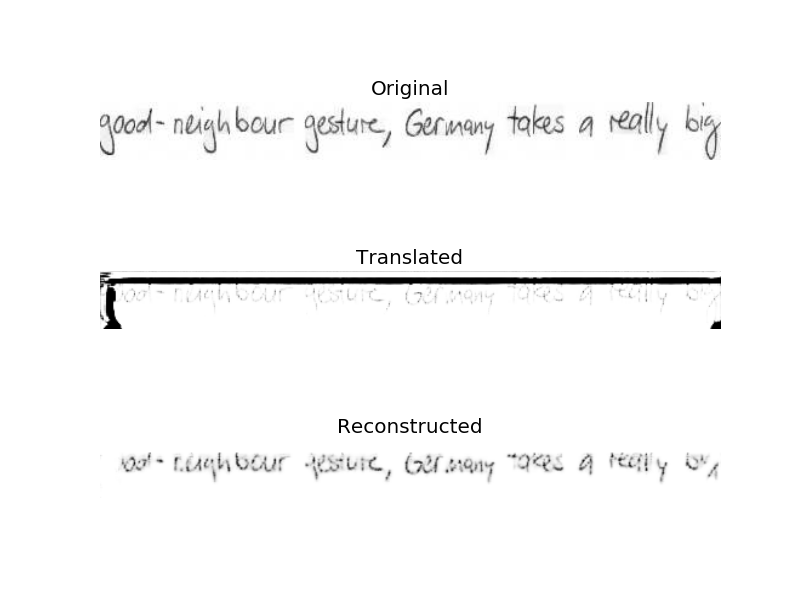 Original
good-neighbour gesture, Germany takes a really big
Translated
ood-neighbour gesture, Germany takes a really big
Reconstructed
ood-neighbour gesture, Germany takes a really big